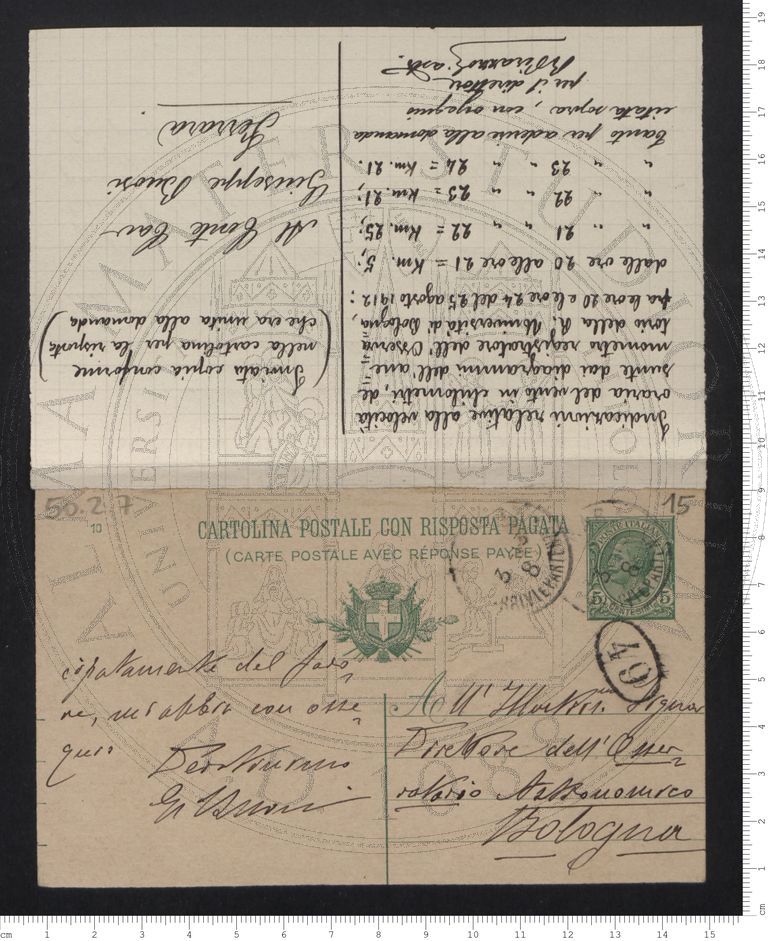 Indicazioni relative alla velocità
oraria del vento in chilometri, de
sunte dai diagrammi dell'ane
mometro registratore dell'Osserva
torio della R. Università di Bologna,
fra le ore 20 e le ore 24 del 25 agosto 1912:
dalle ore 20 alle ore 21 = Km. 5;
" " 21 " " 22 = Km. 25;
" " 22 " " 23 = Km. 21;
" " 23 " " 24 = Km. 21.
Tanto per aderire alla domanda
citata sopra, con ossequio
per il direttore
Inviata copia conforme
nella cartolina per la risposta
(che era unita alla domanda)
Al Conte Cav
Giuseppe Buosi
Ferrara
50.2.7
15
10
CARTOLINA POSTALE CON RISPOSTA PAGATA
(CARTE POSTALE AVEC RÉPONSE PAYÉE)
POSTE ITALIANE
5 CENTESIMI 5
64
cipatamente del favo
re, mi abbia con osse
quio
Devotissimo
A ll' Illustriss. Signor
Direttore dell'Osser
vatorio Astronomico
Bologna
ALMA MATER STUDIORUM
A.D. 1088